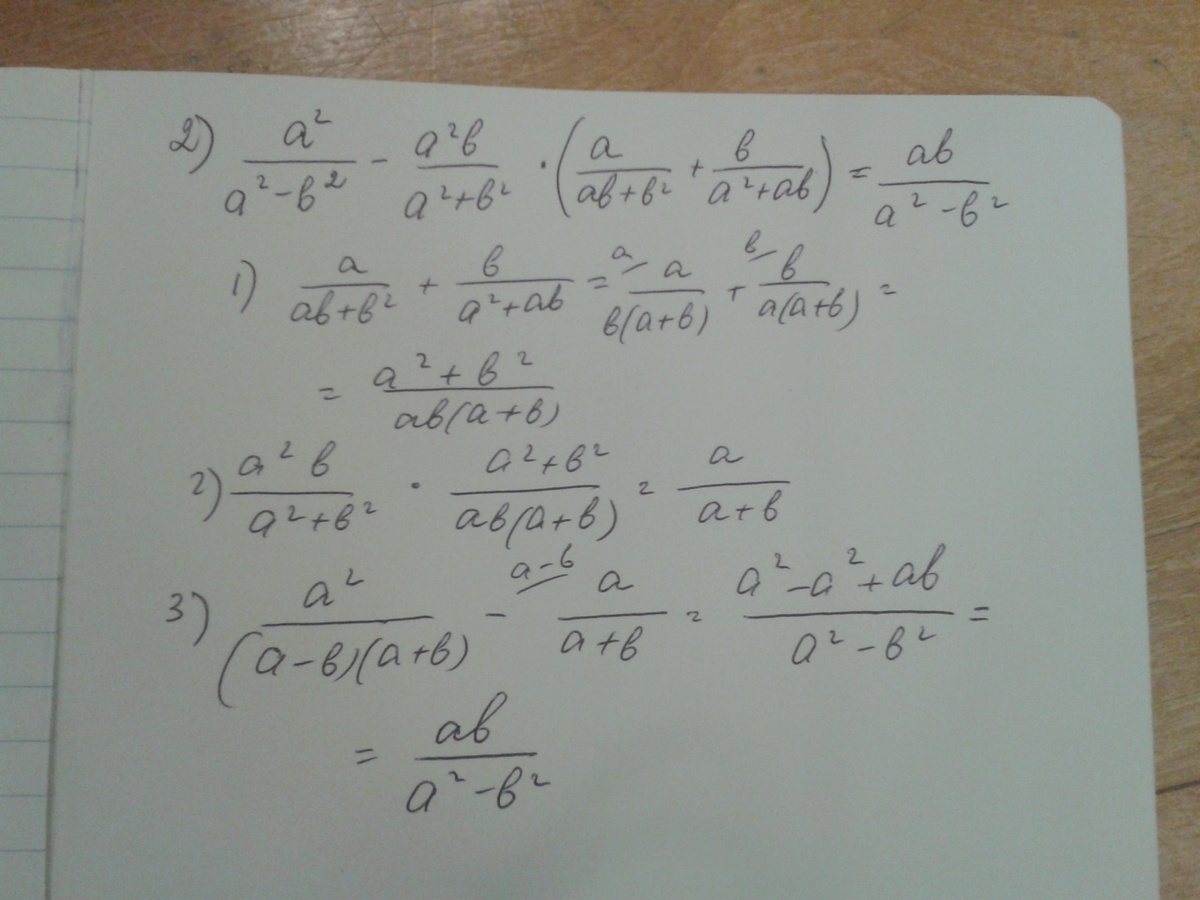 2) a²/(a²-b²) - a²b/(a²+b²) · (a/(ab+b²) + b/(a²+ab)) = ab/(a²-b²)
1) a/(ab+b²) + b/(a²+ab) = ᵃ⁄ a/(b(a+b)) + ᵇ⁄ b/(a(a+b)) =
= (a²+b²)/(ab(a+b))
2) a²b/(a²+b²) · (a²+b²)/(ab(a+b)) = a/(a+b)
3) a²/((a-b)(a+b)) - ᵃ⁻ᵇ⁄ a/(a+b) = (a²-a²+ab)/(a²-b²) =
= ab/(a²-b²)